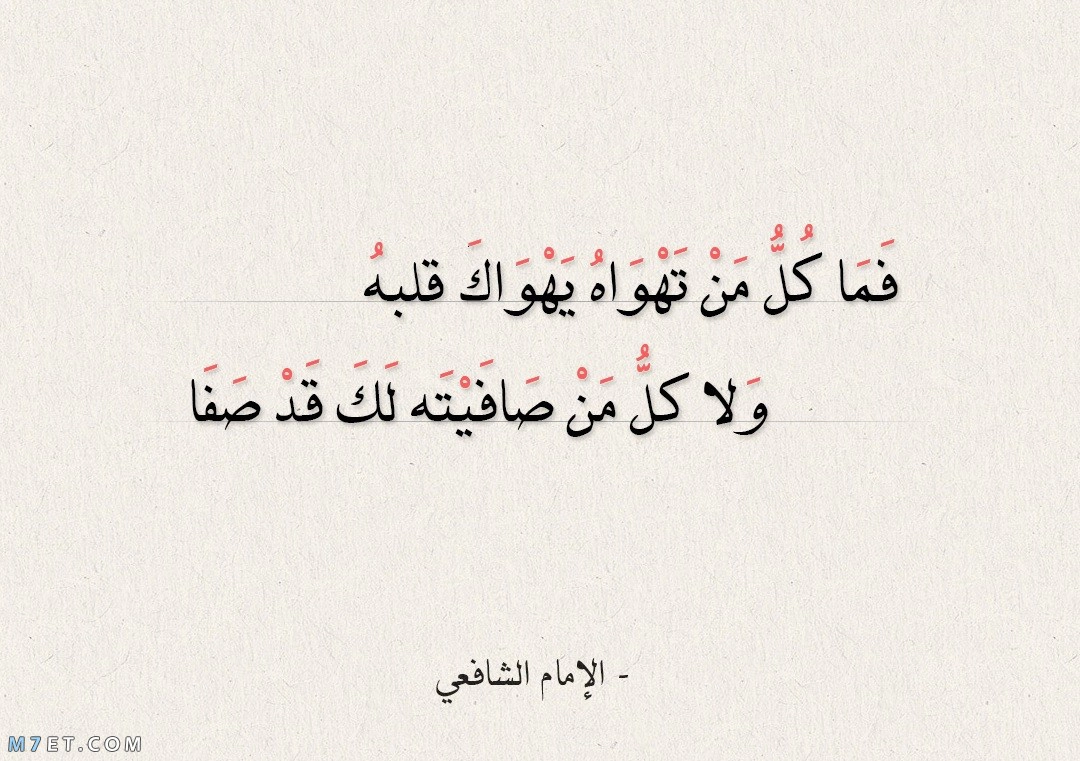 فَمَا كُلُّ مَنْ تَهْوَاهُ يَهْوَاكَ قلبهُ
وَلا كلُّ مَنْ صَافَيْتَه لَكَ قَدْ صَفَا
- الإمام الشافعي
M7ET.COM